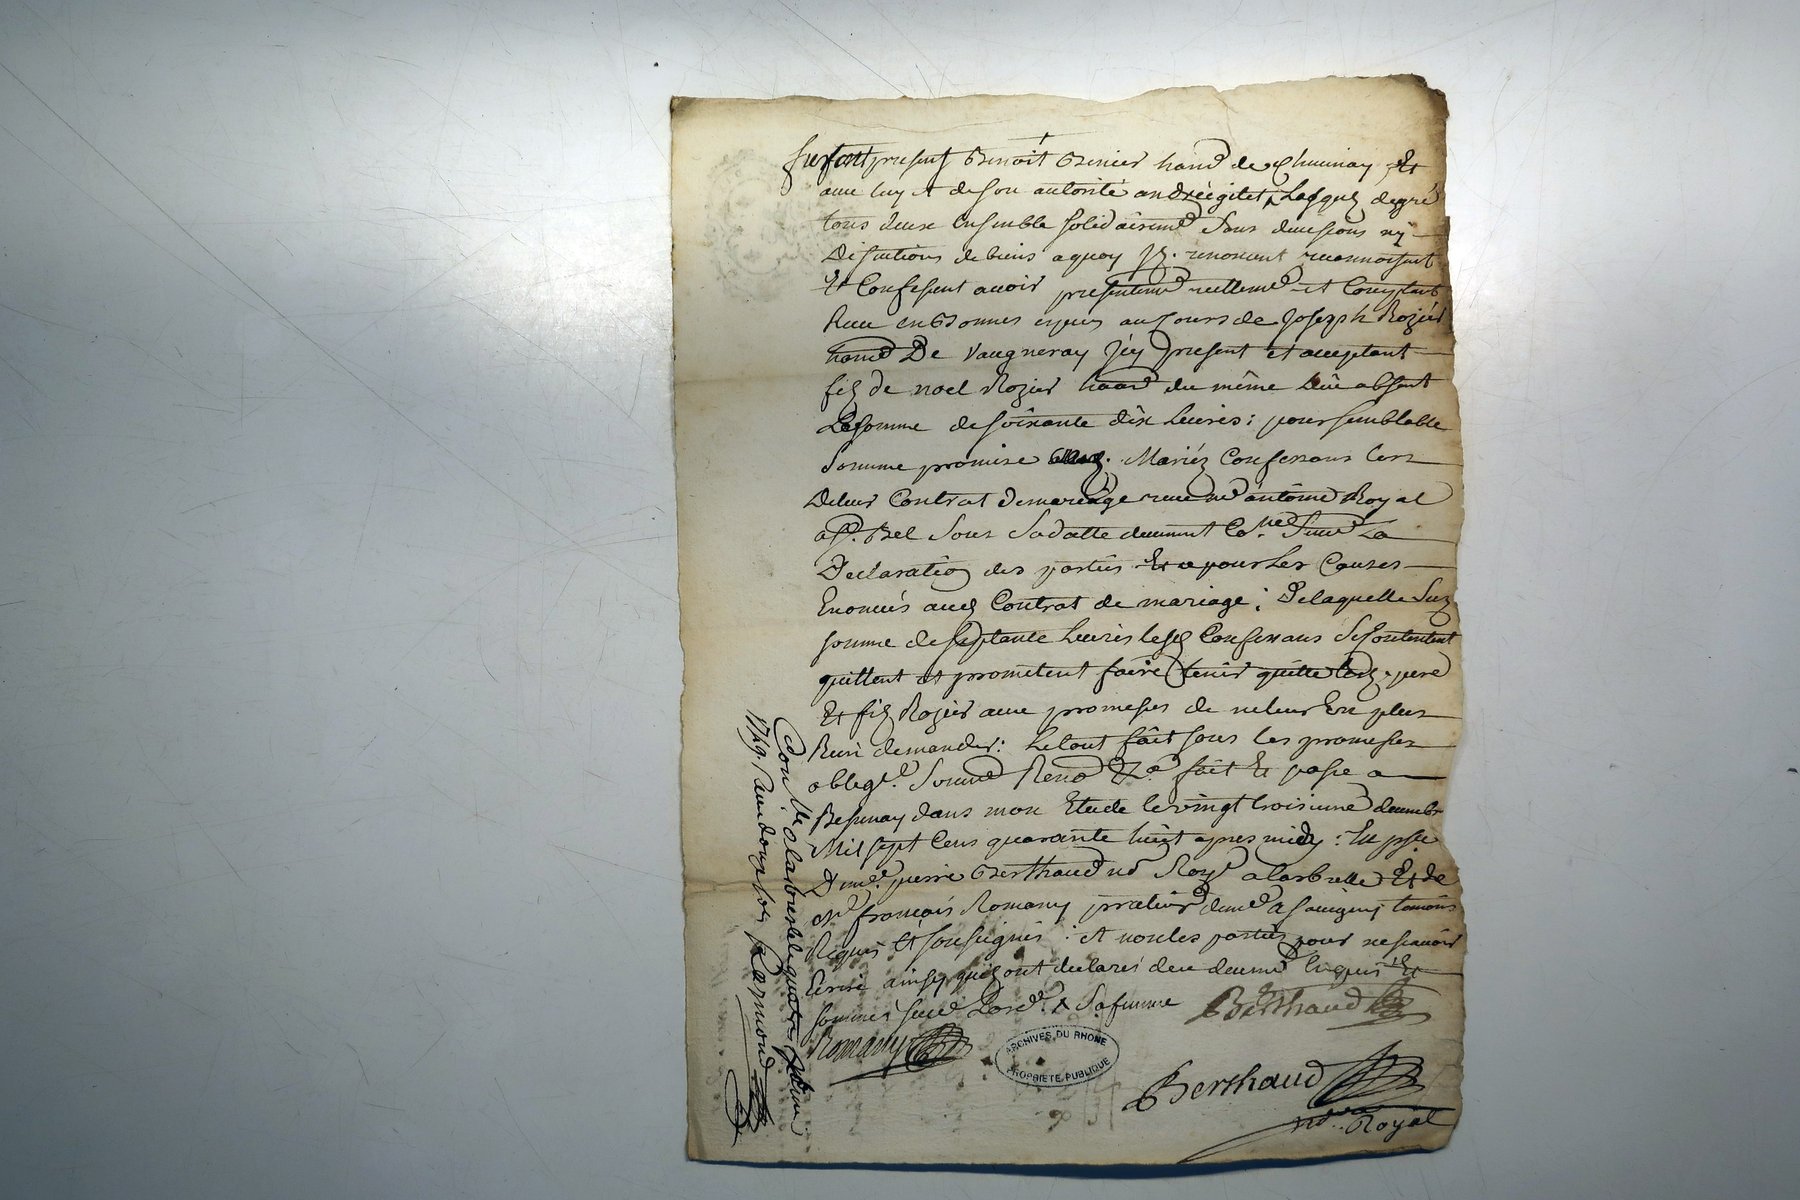 furent present Benoit Benier hand de Chevinay Et
avec luy et de son autorité andrée gitet Lesquels de gré
tous deux Ensemble solidairemt Sans divisions ny
Discutions de biens a quoy renoncent reconnoissent
Et Confessent avoir presentemt reellemt et Comptant
Receu en bonnes especes au Cours de Joseph Rozier
hand De Vaugneray present et acceptant
fils de noel Rozier hand du même Lieu absent
La somme de soixante dix Livres : pour semblable
Somme promise Mariéz Confessans Lors
De leur Contrat de mariage receu me antoine Royal
Sous Sa datte deument La
Declaration des parties Et ce pour Les Causes
Enoncées aud Contrat de mariage ; De laquelle Sus
somme de septante Livres lesd Confessans Se Contentent
quittent et prometent faire tenir quitte lesd. pere
Et fils Rozier avec promesses de ne leur En plus
Rien demander : Le tout fait sous les promesses
obligon. Soumon Renon & a fait Et passé a
Bessenay dans mon Etude le vingt troisieme decembre
Mil sept Cens quarante huit apres midy : En psce
De me. pierre Berthaud no Roye a Larbrelle Et de
Mre françois Romany praticien demt a Savigny temoins
Requis Et soussignés : et non les parties pour ne sçavoir
Ecrire ainsy qu'ils ont declaré de ce deument Enquis Et
sommés & Sa femme Berthaud
Romany
ARCHIVES DU RHONE
PROPRIETE PUBLIQUE
Berthaud
no. Royal
Con.lé a larbresle le quatre janvier
1749. Reçu douze sols